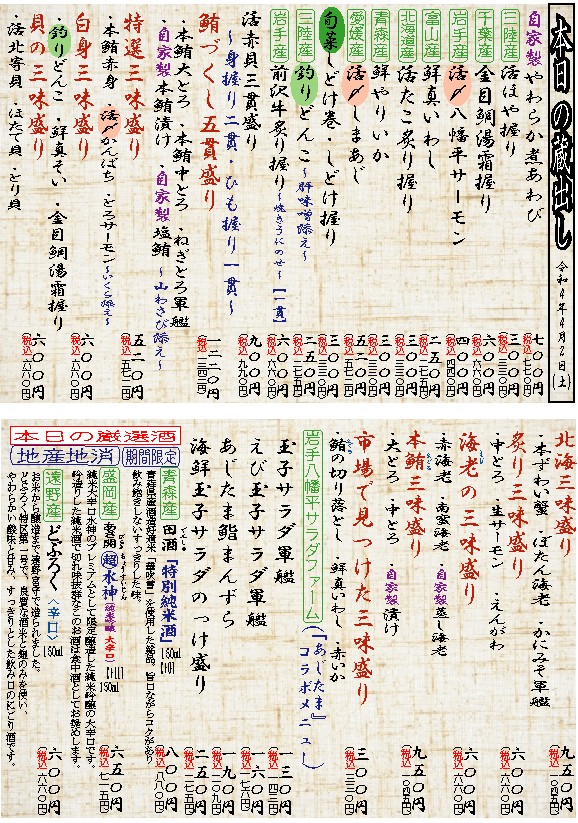 本日の蔵出し 令和4年4月2日(土)
自家製 やわらか煮あわび 七〇〇円 (税込)七七〇円
三陸産 活ほや握り 三〇〇円 (税込)三三〇円
千葉産 金目鯛湯霜握り 六〇〇円 (税込)六六〇円
岩手産 活〆八幡平サーモン 四〇〇円 (税込)四四〇円
富山産 鮮真いわし 二五〇円 (税込)二七五円
北海道産 活たこ炙り握り 三〇〇円 (税込)三三〇円
青森産 鮮やりいか 三〇〇円 (税込)三三〇円
愛媛産 活〆しまあじ 五二〇円 (税込)五七二円
旬菜 しどけ巻・しどけ握り 三〇〇円 (税込)三三〇円
三陸産 釣りどんこ～肝味噌添え～ 二五〇円 (税込)二七五円
岩手産 前沢牛炙り握り～焼きうにのせ～【一貫】 六〇〇円 (税込)六六〇円
活赤貝三貫盛り 九〇〇円 (税込)九九〇円
～身握り二貫・ひも握り一貫～
鮪づくし五貫盛り 一二二〇円 (税込)一三四二円
・本鮪大とろ ・本鮪中とろ ・ねぎとろ軍艦
・自家製本鮪漬け ・自家製塩鮪 ～山わさび添え～
特選三味盛り 五二〇円 (税込)五七二円
・本鮪赤身 ・活〆かんぱち ・とろサーモン～いくら添え～
白身三味盛り 六〇〇円 (税込)六六〇円
・釣りどんこ ・鮮真そい ・金目鯛湯霜握り
貝の三味盛り 六〇〇円 (税込)六六〇円
・活北寄貝 ・ほたて貝 ・とり貝
北海三味盛り 九五〇円 (税込)一〇四五円
・本ずわい蟹 ・ぼたん海老 ・かにみそ軍艦
炙り三味盛り 六〇〇円 (税込)六六〇円
・中とろ ・生サーモン ・えんがわ
海老の三味盛り 六〇〇円 (税込)六六〇円
・赤海老 ・南蛮海老 ・自家製蒸し海老
本鮪三味盛り 九五〇円 (税込)一〇四五円
・大とろ ・中とろ ・自家製漬け
市場で見つけた三味盛り 三〇〇円 (税込)三三〇円
・鮪の切り落とし ・鮮真いわし ・赤いか
岩手八幡平サラダファーム (『あじたま』コラボメニュー)
玉子サラダ軍艦 一三〇円 (税込)一四三円
えび玉子サラダ軍艦 一六〇円 (税込)一七六円
あじたま鮨まんずら 一九〇円 (税込)二〇九円
海鮮玉子サラダのっけ盛り 二五〇円 (税込)二七五円
本日の厳選酒
地産地消 期間限定
青森産 田酒「特別純米酒」 180ml 八〇〇円 (税込)八八〇円
青森県産酒造好適米「華吹雪」を使用した銘品。旨口ながらコクがあり
飲み飽きしないすっきりした味。
盛岡産 あさ開 超水神 純米吟醸 大辛口 150ml 六五〇円 (税込)七一五円
純米大辛口水神のプレミアムとして限定醸造した純米吟醸の大辛口です。
吟造りした純米酒で切れ味抜群なこのお酒は食中酒としてお奨めします。
遠野産 どぶろく <辛口> 150ml 六〇〇円 (税込)六六〇円
お米から醸造まで遠野宮守で造られました。
どぶろく特区第一号で、良質な酒米と麹のみを使い、
やわらかい酸味と甘み、すっきりとした飲み口のにごり酒です。